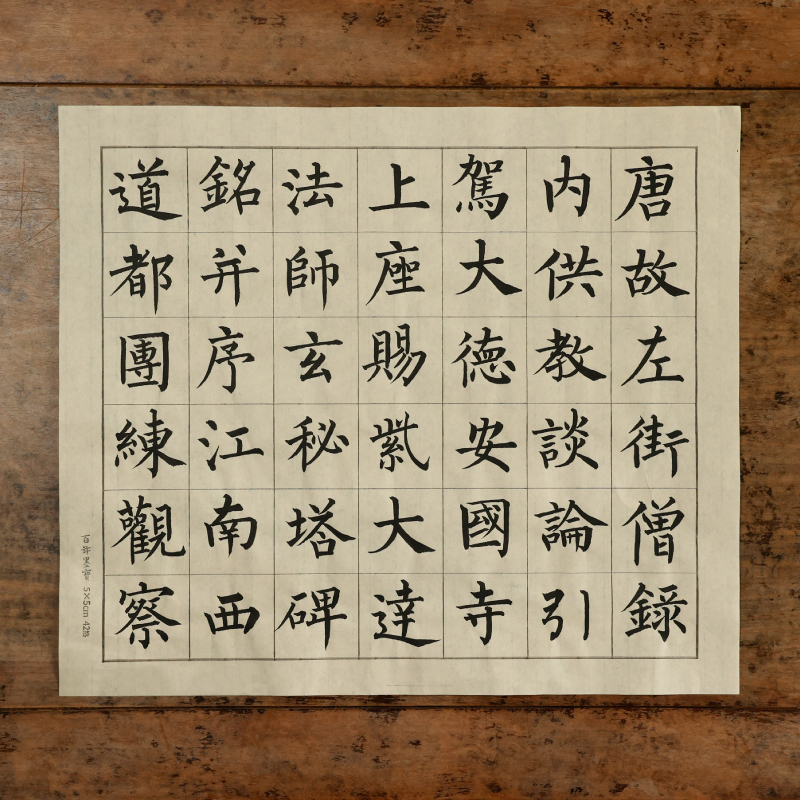 唐故左街僧録
内供教談論引
駕大德安國寺
上座賜紫大達
法師玄秘塔碑
銘并序江南西
道都團練觀察
5×5cm 42格